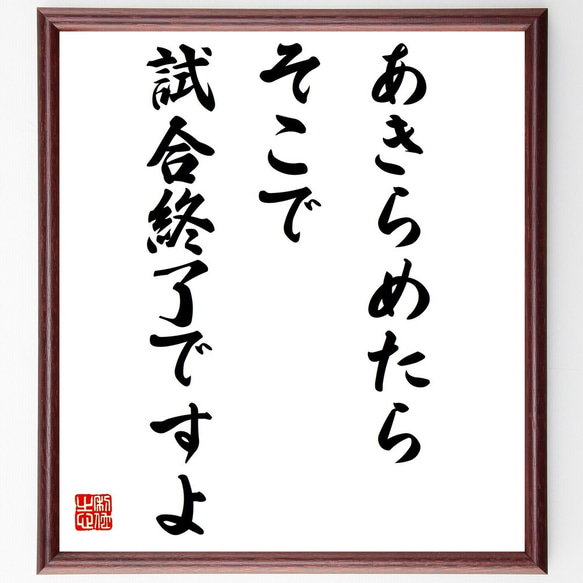 あきらめたら
そこで
試合終了ですよ